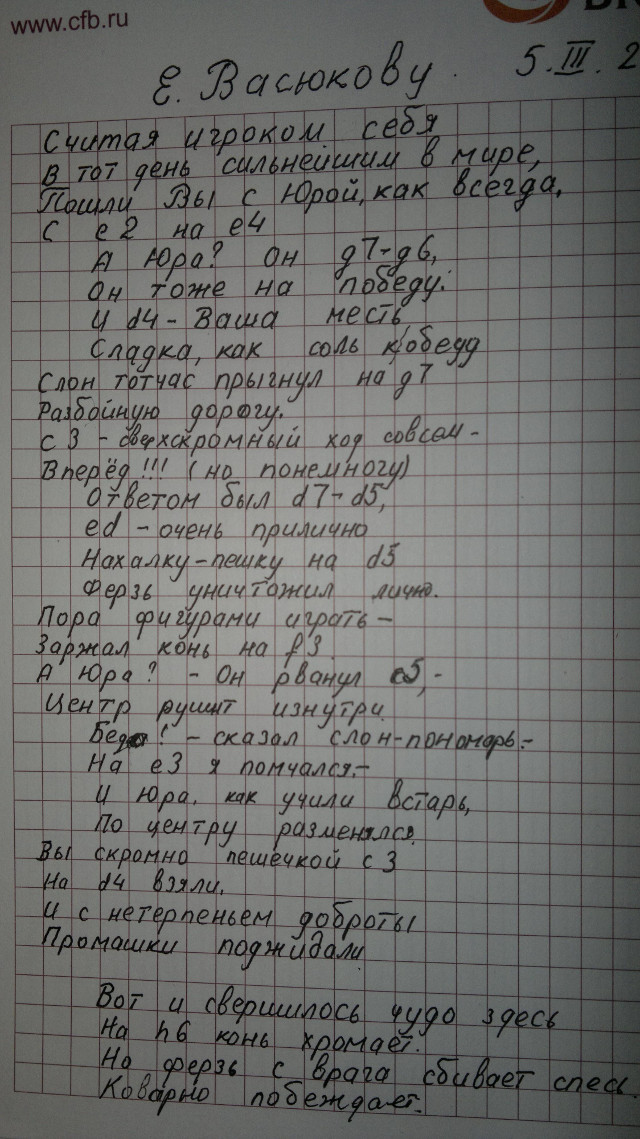 www.cfb.ru
Е. Васюкову. 5.III.2
Считая игроком себя
В тот день сильнейшим в мире,
Пошли Вы с Юрой, как всегда,
С е2 на е4
А Юра? Он д7-д6,
Он тоже на победу.
И d4 - Ваша месть
Сладка, как соль к обеду
Слон тотчас прыгнул на д7
Разбойную дорогу.
с3 - сверхскромный ход совсем -
Вперёд!!! (но понемногу)
Ответом был d7-d5,
ed - очень прилично
Нахалку-пешку на d5
Ферзь уничтожил лично.
Пора фигурами играть -
Заржал конь на f3.
А Юра? - Он рванул с5, -
Центр рушит изнутри.
Беда! - сказал слон-пономарь. -
На е3 я помчался. -
И Юра, как учили встарь,
По центру разменялся.
Вы скромно пешечкой с3
На d4 взяли,
И с нетерпеньем доброты
Промашки поджидали
Вот и свершилось чудо здесь
На h6 конь хромает.
Но ферзь с врага сбивает спесь.
Коварно побеждает.